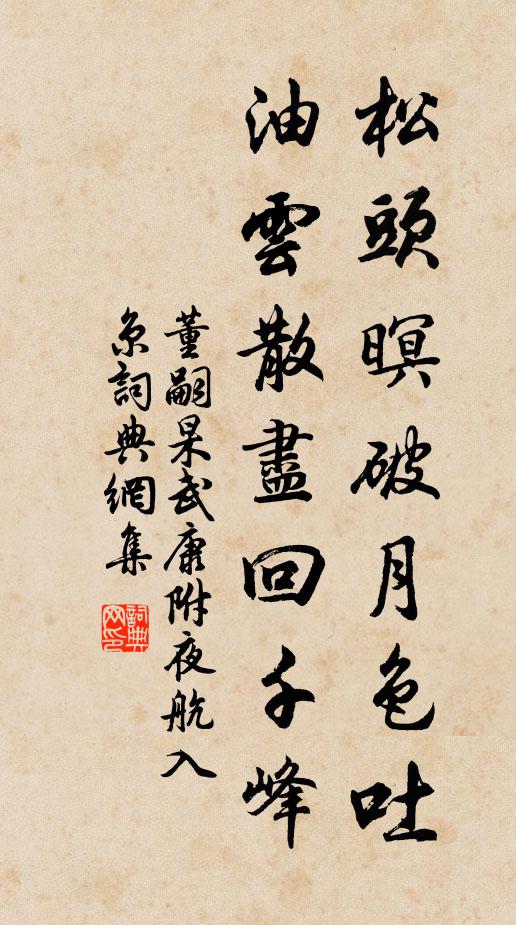 松頭暝破月色吐
油雲散盡回千峰
董嗣杲武康附夜航入
京詞典網集
詞典网印